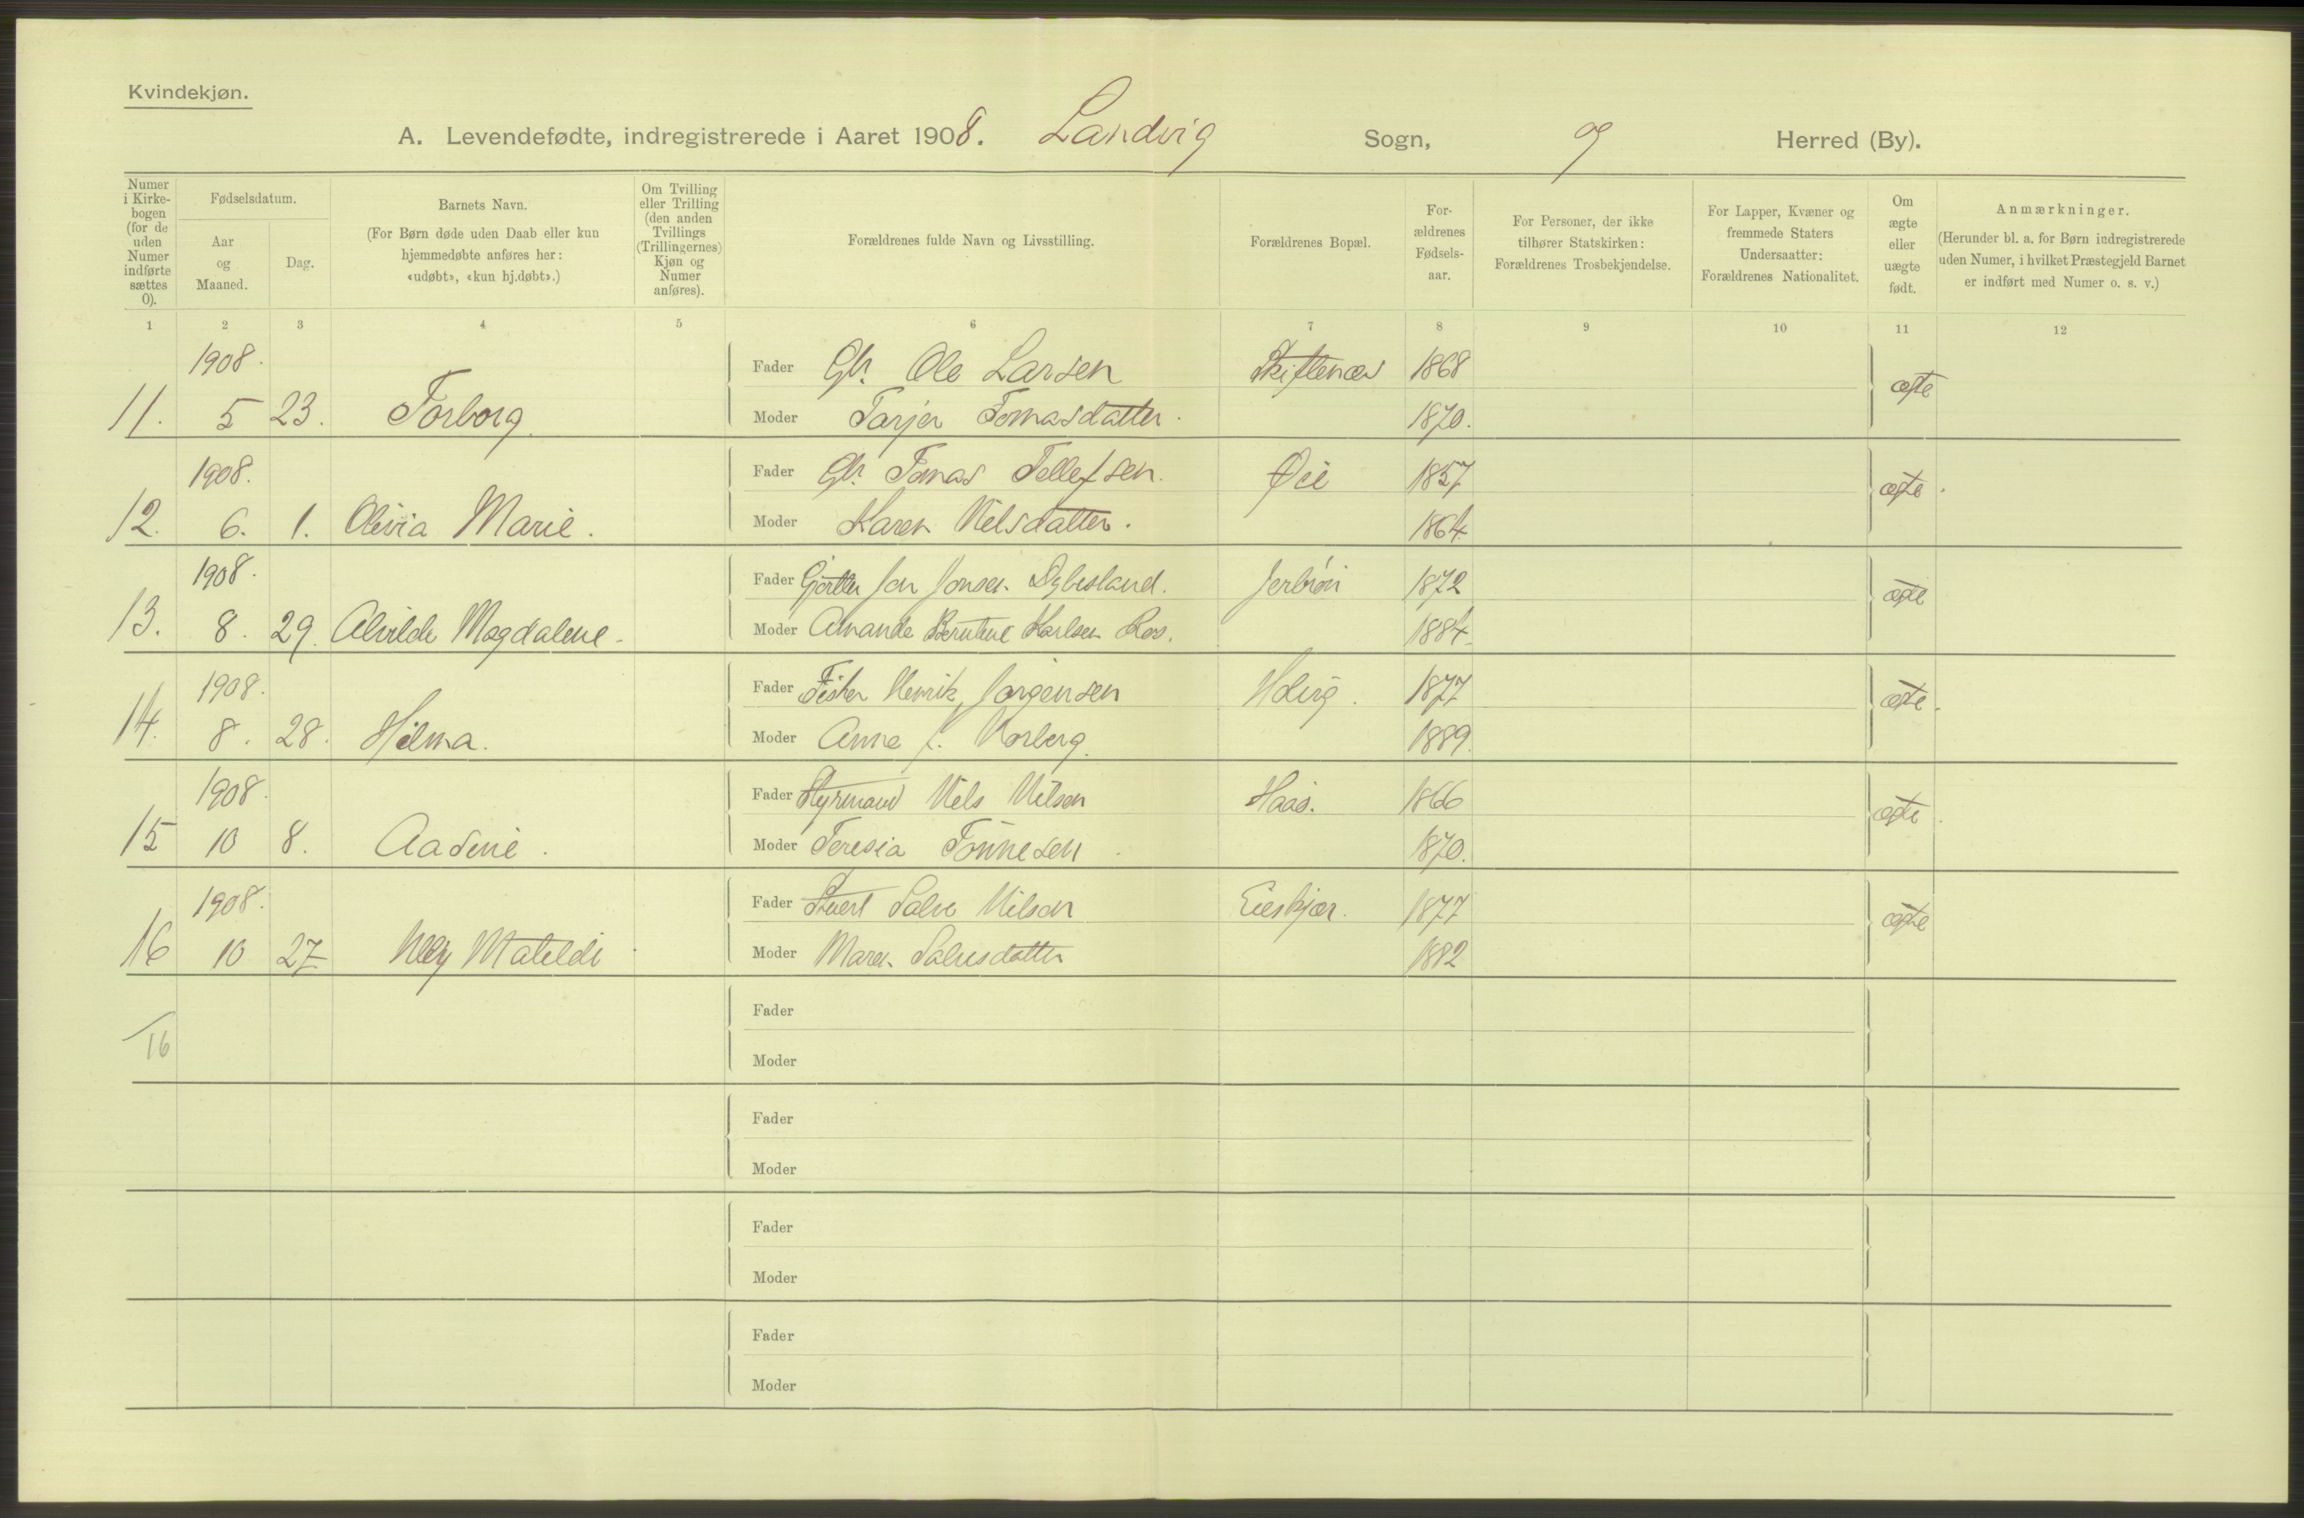 Kvindekjøn.
A. Levendefødte, indregistrerede i Aaret 1908. Landvig Sogn, og Herred (By).
Numer i Kirkebogen (for de uden Numer indførte sættes 0).
Fødselsdatum.
Aar og Maaned.
Dag.
Barnets Navn.
(For Børn døde uden Daab eller kun hjemmedøbte anføres her: «udøbt», «kun hj.døbt».)
Om Tvilling eller Trilling (den anden Tvillings (Trillingernes) Kjøn og Numer anføres).
Forældrenes fulde Navn og Livsstilling.
Forældrenes Bopæl.
Forældrenes Fødselsaar.
For Personer, der ikke tilhører Statskirken: Forældrenes Trosbekjendelse.
For Lapper, Kvæner og fremmede Staters Undersaatter: Forældrenes Nationalitet.
Om ægte eller uægte født.
Anmærkninger.
(Herunder bl. a. for Børn indregistrerede uden Numer, i hvilket Præstegjeld Barnet er indført med Numer o. s. v.)
1 2 3 4 5 6 7 8 9 10 11 12
1908. Fader Gbr. Ole Larsen Skiftenæs 1868 ægte
11. 5 23. Torborg. Moder Tarjer Tomasdatter. 1870.
1908. Fader Gbr. Tomas Tellefsen. Øie 1857 ægte.
12. 6. 1. Olivia Marie. Moder Karen Nilsdatter. 1864.
1908. Fader Gjørtler Jon Jonsen Dybesland. 1872 ægte
13. 8. 29. Alvilde Magdalene Moder Amanda Berntine Karlsen Ros. 1884.
1908. Fader Fisker Henrik Jørgensen Holvig. 1877 ægte.
14. 8. 28. Hilma. Moder Anne J. Vorberg. 1889.
1908. Fader Styrmand Niels Nilsen Haas. 1866 ægte.
15 10 8. Aasine. Moder Teresia Tönnesen. 1870.
1908. Fader Salve Nilsen Eieskjær. 1877 ægte
16 10 27 Nelly Matilde Moder Maren Salvesdatter 1882
16 Fader
Moder
Fader
Moder
Fader
Moder
Fader
Moder